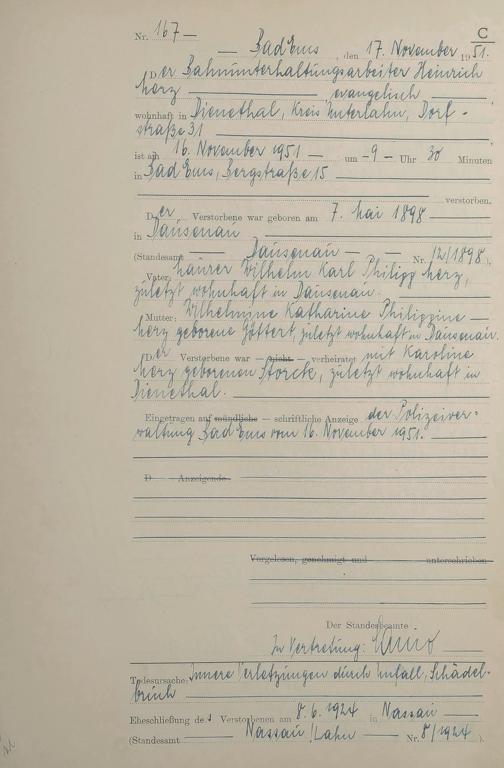 C
Nr. 167 —
— Bad Ems, den 17. November 1951.
Der Bahnunterhaltungsarbeiter Heinrich
Herz — evangelisch —,
wohnhaft in Dienethal, Kreis Unterlahn, Dorf-
straße 31
ist am 16. November 1951 — um — 9 — Uhr 30 Minuten
in Bad Ems, Bergstraße 15
verstorben.
Der Verstorbene war geboren am 7. Mai 1898
in Dausenau
(Standesamt — Dausenau — Nr. 12/1898).
Vater: Maurer Wilhelm Karl Philipp Herz,
zuletzt wohnhaft in Dausenau.
Mutter: Wilhelmine Katharine Philippine —
Herz geborene Göttert, zuletzt wohnhaft in Dausenau.
Der Verstorbene war — nicht — verheiratet mit Karoline
Herz geborenen Storck, zuletzt wohnhaft in
Dienethal.
Eingetragen auf mündliche — schriftliche Anzeige der Polizeiver-
waltung Bad Ems vom 16. November 1951.
D Anzeigende
Vorgelesen, genehmigt und unterschrieben
Der Standesbeamte
In Vertretung:
Todesursache: Innere Verletzungen durch Unfall, Schädel-
bruch
Eheschließung des Verstorbenen am 8.6.1924 in Nassau
(Standesamt Nassau/Lahn — Nr. 8/1924).